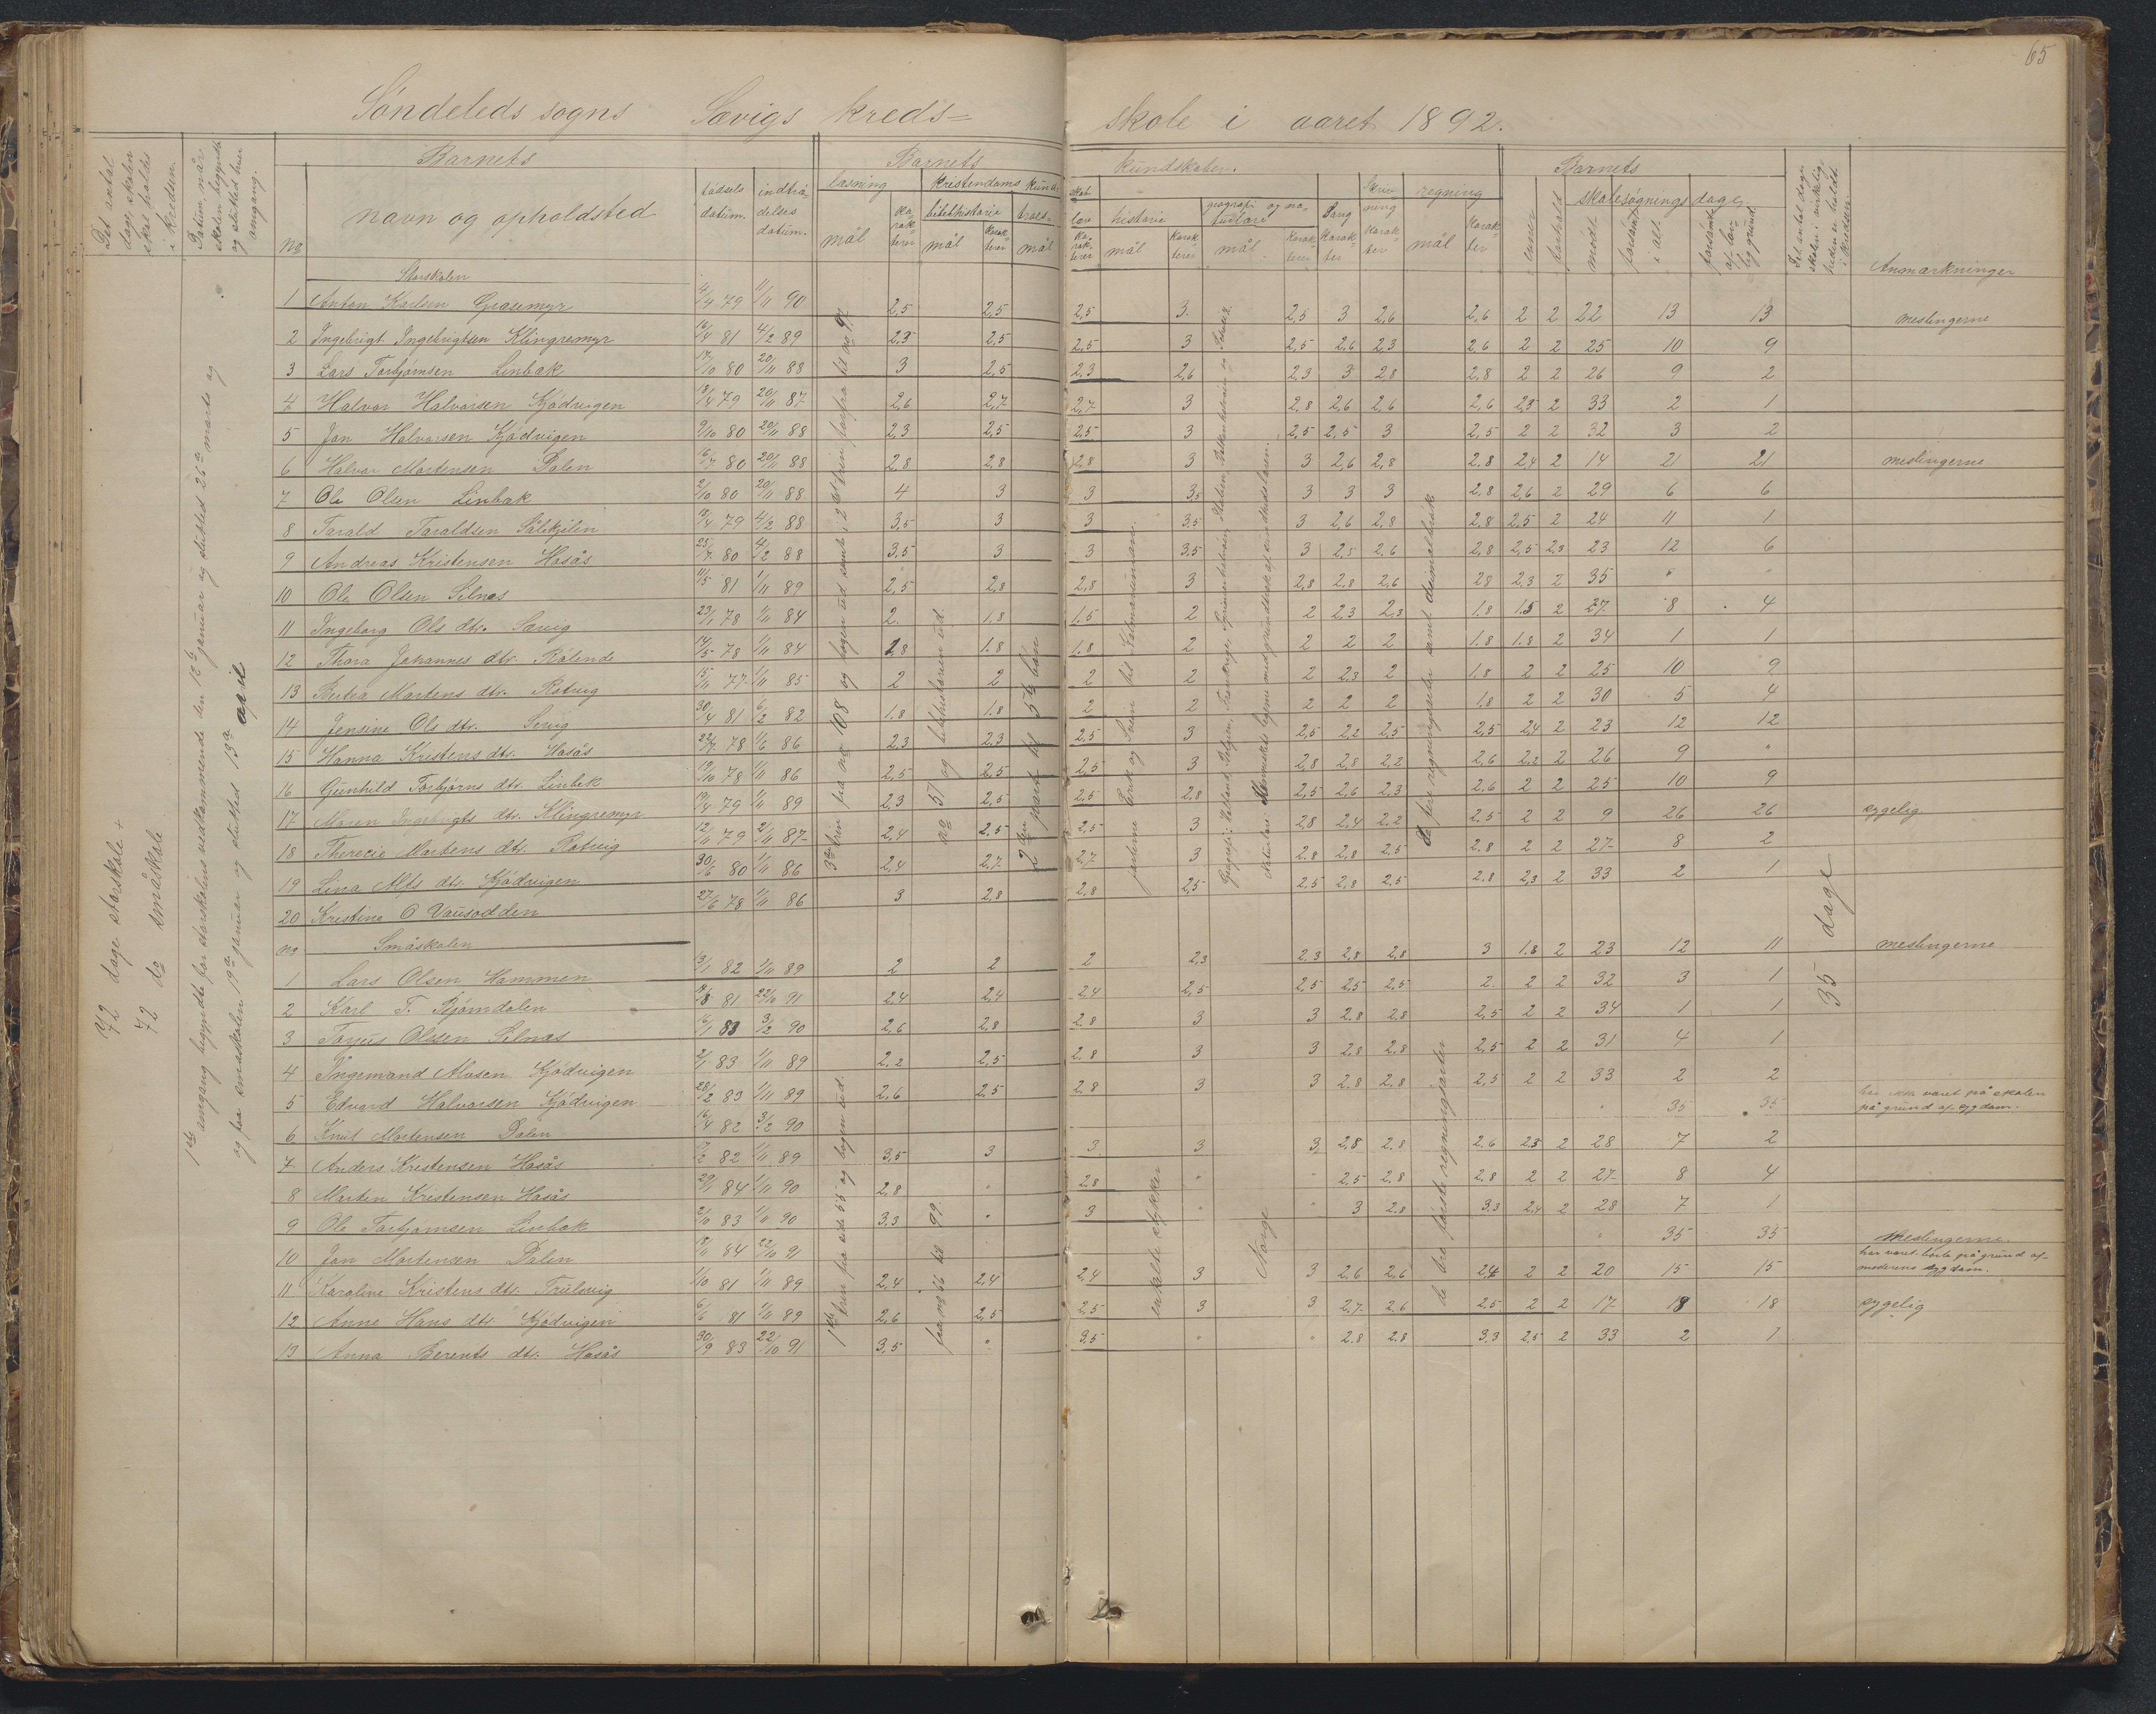 65
Söndeleds sogns Sævigs kreds=
skole i aaret 1892.
Det antal dage, skolen skal holdes i kredsen.
Datum, når skolen begyndte og slutted hver omgang.
Barnets
no
navn og opholdsted
födsels datum.
indtrædelses datum.
Barnets
kundskaber.
læsning
kristendoms kund=
skab
bibelhistorie
troes=
lære
mål
karakterer
historie
geografi og naturlære
Sang
Skrivning
regning
mål
karakter
Barnets
evner
forhold
skolesögnings dage.
mödt
forsömt i alt
forsömt af lovlig grund
Det antal dage skolen i virkeligheden er holdt i kredsen
Anmærkninger
72 dage storskole +
72 do småskole
1ste omgang begyndte for storskolens vedkommende den 13de januar og slutted 26de marts og
og for småskolen 19de januar og slutted 13de april
Storskolen
1 Anton Karlsen Grasemyr 4/4 79 11/11 90 2,5 2,5 2,5 3. 2,5 3 2,6 2,6 2 2 22 13 13 meslingerne
2 Ingebrigt Ingebrigtsen Klingremyr 16/4 81 4/2 89 2,3 2,5 2,5 3 2,5 2,6 2,3 2,6 2 2 25 10 9
3 Lars Torbjörnsen Linbæk 17/10 80 20/11 88 3 2,5 2,3 2,6 2,3 3 2,8 2,8 2 2 26 9 2
4 Halvor Halvorsen Kjödvigen 13/4 79 20/11 87 2,6 2,7 2,7 3 2,8 2,6 2,6 2,6 2,3 2 33 2 1
5 Jon Halvorsen Kjödvigen 9/10 80 20/11 88 2,3 2,5 2,5 3 2,5 2,5 3 2,5 2 2 32 3 2
6 Halvor Mortensen Dalen 16/7 80 20/11 88 2,8 2,8 2,8 3 3 2,6 2,8 2.8 2,4 2 14 21 21 meslingerne
7 Ole Olsen Linbæk 2/10 80 20/11 88 4 3 3 3,5 3 3 3 2,8 2,6 2 29 6 6
8 Tarald Taraldsen 12/4 79 4/2 88 3,5 3 3 3,5 3 2,6 2,8 2,8 2,5 2 24 11 1
9 Andreas Kristensen Hasås 25/7 80 4/2 88 3,5 3 3 3,5 3 2,5 2,6 2,8 2,5 2,3 23 12 6
10 Ole Olsen Silnes 11/5 81 1/11 89 2,5 2,8 2,8 3 2,8 2,8 2,6 28 2,3 2 35 " "
11 Ingeborg Ols dtr. Sævig 23/1 78 1/11 84 2. 1,8 1.5 2 2 2,3 2,3 1.8 1.5 2 27 8 4
12 Thora Johannes dtr. Rölende 14/5 78 1/11 84 1,8 1.8 1.8 2 2 2 2 1.8 1.8 2 34 1 1
13 Berta Martens dtr. Rotvig 15/11 77 1/11 85 2 2 2 2 2 2,3 2 1.8 2 2 25 10 9
14 Jensine Ols dtr. Sevig 30/4 81 6/2 82 1.8 1.8 2 2 2 2 2 1,8 2 2 30 5 4
15 Hanna Kristens dtr. Hasås 22/7 78 1/6 86 2,3 2,3 2.5 3 2,5 2,2 2,5 2,5 2,4 2 23 12 12
16 Gunhild Torbjörns dtr. Linbek 19/10 78 1/11 86 2,5 2,5 2,5 3 2,8 2,8 2,2 2,6 2,2 2 26 9 "
17 Maren Ingebrigts dtr. Klingremyr 19/4 79 1/11 89 2,3 2,5 2,5 2,8 2,5 2,6 2,3 2.6 2 2 25 10 9
18 Therecie Martens dtr. Rotvig 12/11 79 2/11 87 2,4 2.5 2,5 3 2,8 2,4 2,2 2.5 2 2 9 26 26 sygelig
19 Lina Alfs dtr. Kjödvigen 30/6 80 1/11 86 2,4 2,7 2,7 3 2.8 2,8 2.5 2.8 2 2 27 8 2
20 Kristine O Vausodden 27/6 78 1/11 86 3 2,8 2.8 2,5 2.5 2,8 2,5 2.8 2,3 2 33 2 1
3die trin fra no 108 og bogen ud samt i 2det trin forfra til no 97
no 51 og bibelhistorien ud.
2den part til 5te bön
jarlerne Eirik og Svein til Kalmarunionen.
Geografi:
Naturlære:
de fire regningsarter samt desimalbrök
35 dage
no Småskolen
1 Lars Olsen Hammen 13/1 82 1/11 89 2 2 2 2,3 2.3 2,8 2,8 3 1.8 2 23 12 11 meslingerne
2 Karl T. Björndalen 9/8 81 22/10 91 2,4 2,4 2,4 2,5 2,5 2,5 2,5 2. 2 2 32 3 1
3 Torjus Olsen Silnæs 16/1 83 3/2 90 2,6 2,8 2.8 3 3 2.8 2.8 2,5 2 2 34 1 1
4 Ingemand Alvsen Kjödvigen 2/1 83 1/11 89 2,2 2,5 2.8 3 3 2.8 2.8 2,5 2 2 31 4 1
5 Edvard Halvorsen Kjödvigen 28/2 83 1/11 89 2,6 2,5 2.8 3 3 2.8 2.8 2,5 2 2 33 2 2
6 Knut Mortensen Dalen 16/4 82 3/2 90 " 35 35 har ikke været på skolen på grund af sygdom.
7 Anders Kristensen Hasås 7/2 82 1/11 89 3,5 3 3 3 3 2,8 2.8 2.6 2.3 2 28 7 2
8 Martin Kristensen Hasås 29/1 84 1/11 90 2,8 " 2.8 " " 2.5 2.8 2.8 2 2 27 8 4
9 Ole Torbjörnsen Linbæk 2/10 83 1/11 90 3,3 " 3 " " 3 2.8 3,3 2,4 2 28 7 1
10 Jon Mortensen Dalen 84 22/10 91 " 35 35 Meslingerne.
11 Karoline Kristens dtr. Trulsvig 1/10 81 1/11 89 2,4 2,4 2,4 3 3 2,6 2,6 2,4 2 2 20 15 15 har været borte på grund af moderens sygdom.
12 Anne Hans dtr. Kjödvigen 6/6 81 1/11 89 2,6 2,5 2,5 3 3 2,7 2.6 2,5 2 2 17 18 18 sygelig
13 Anna Berents dtr. Hasås 30/9 83 22/10 91 3,5 " 3,5 " " 2.8 2.8 3,3 2,5 2 33 2 1
1ste trin fra side 55 og bogen ud.
fra no 66 til 99.
enkelte stykker
Norge
de tre förste regningsarter